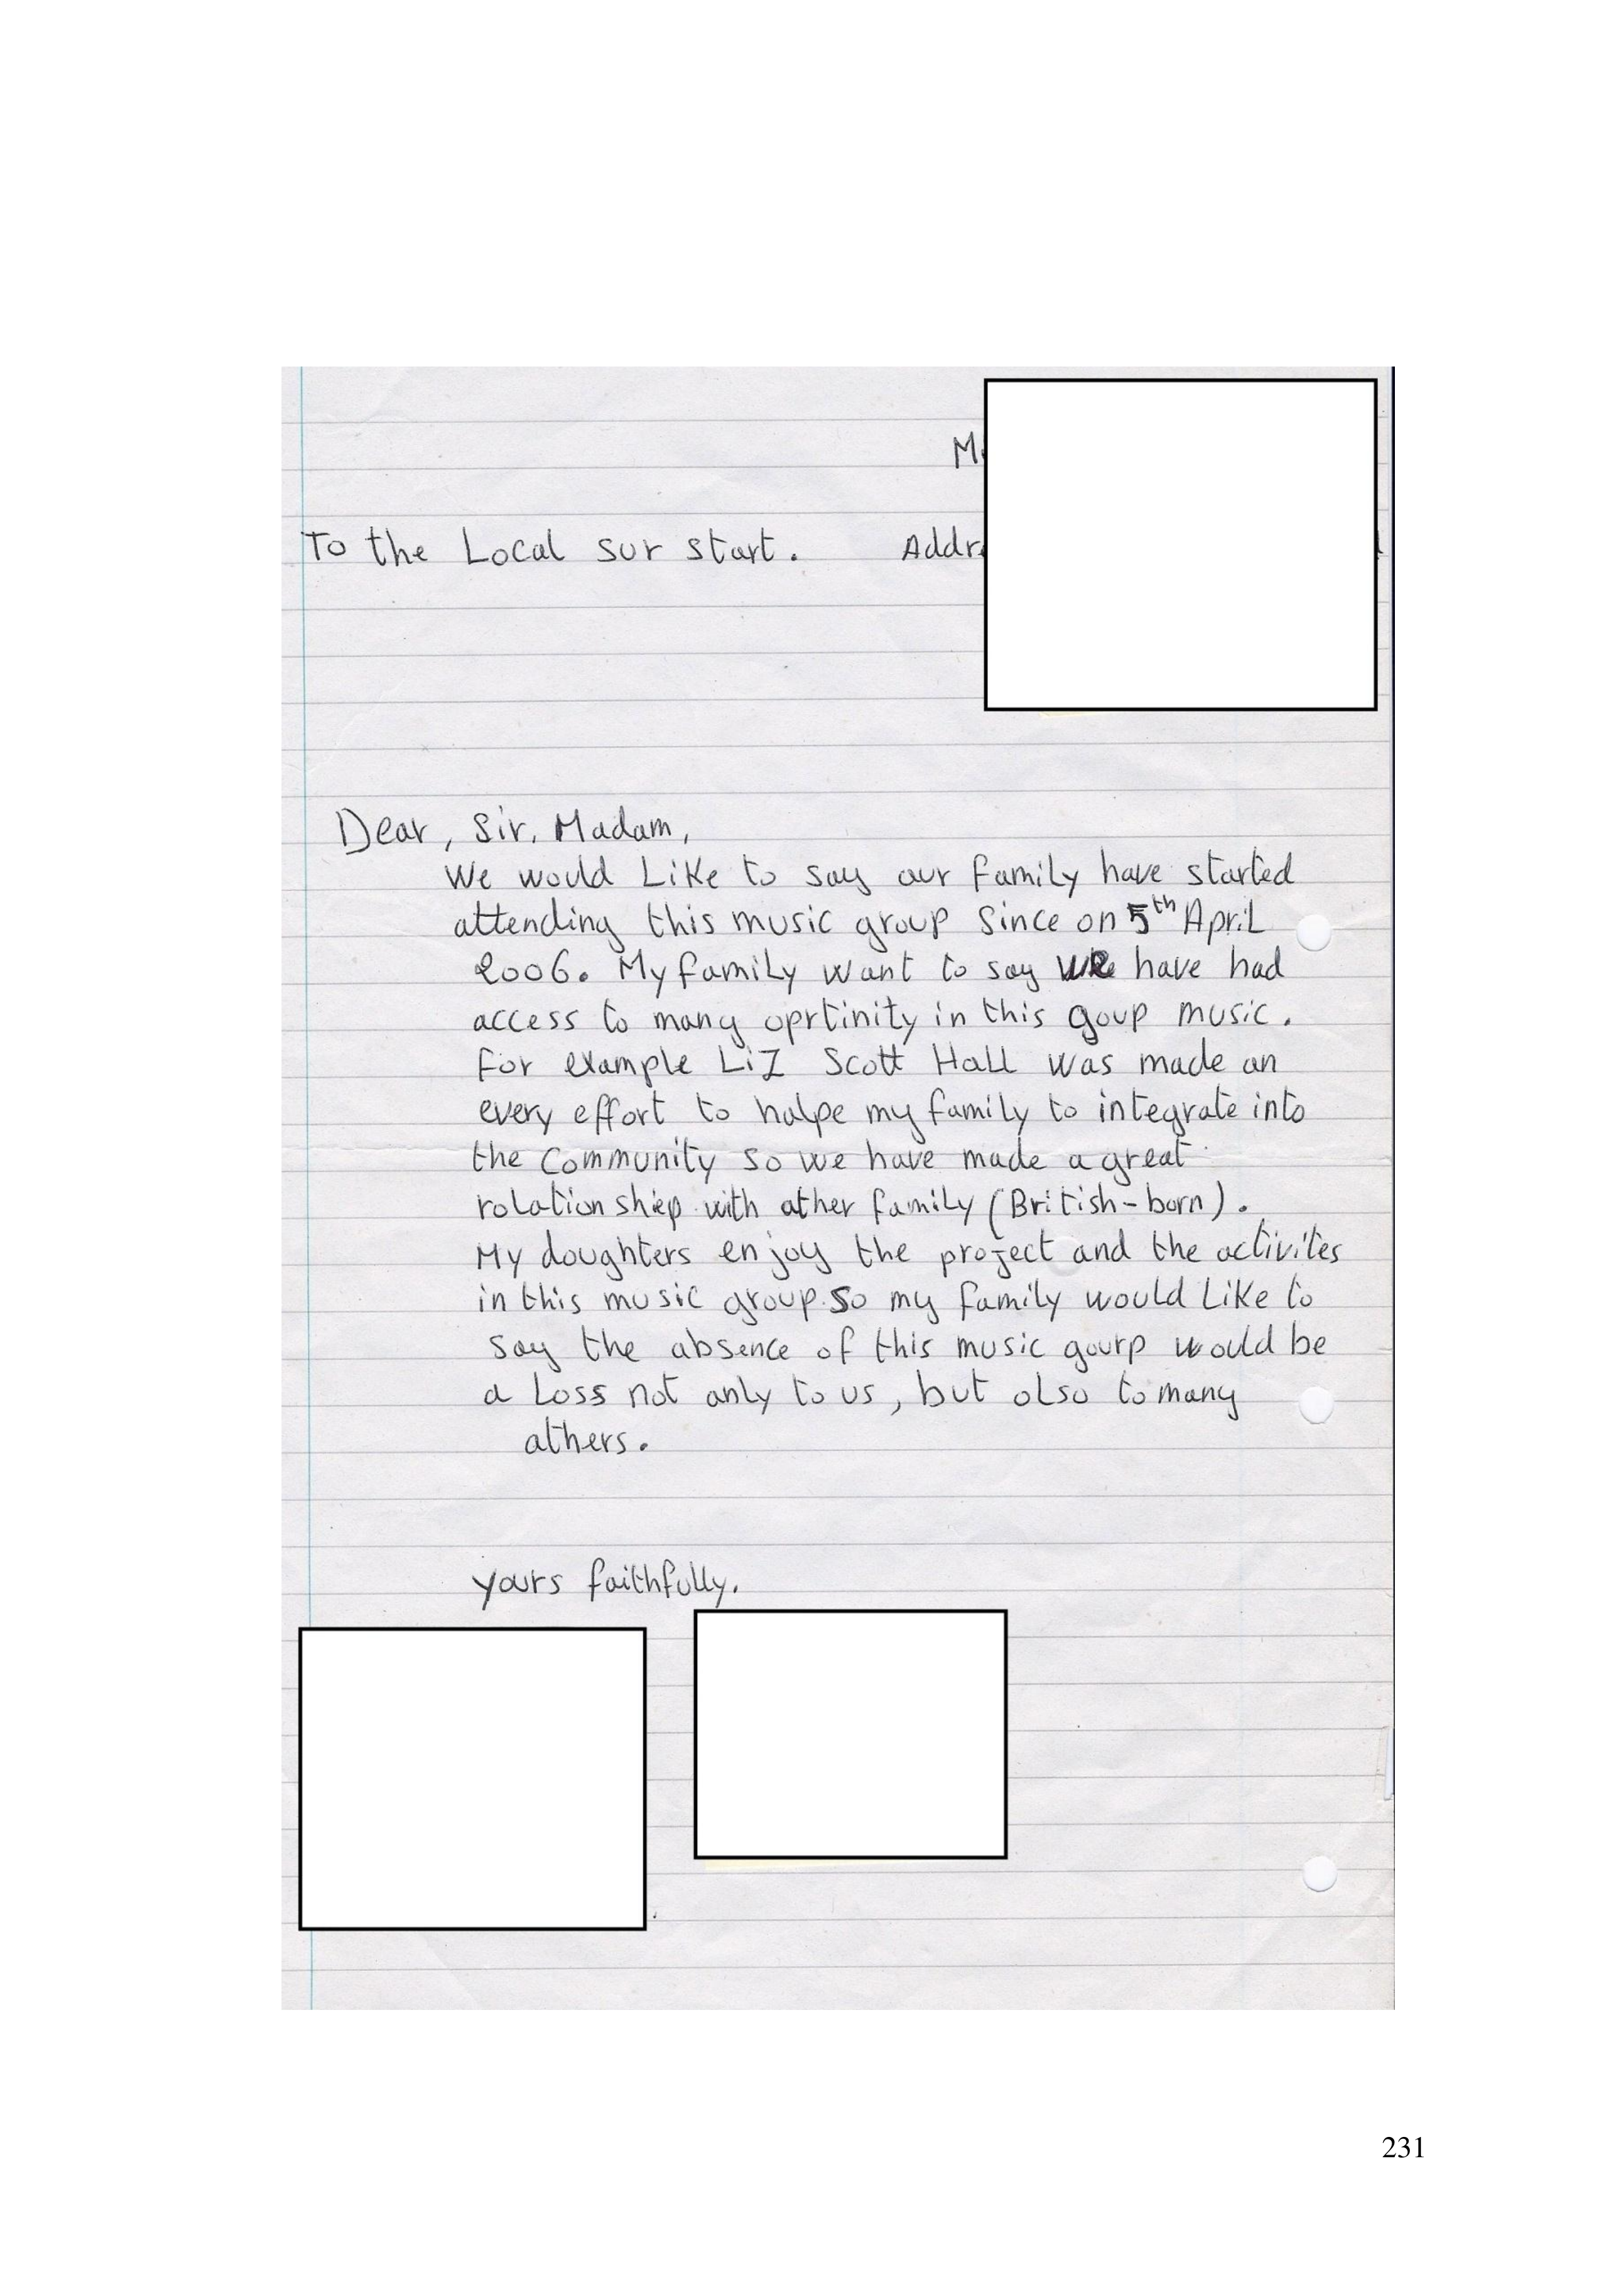 To the Local sur start. Addr
Dear, Sir. Madam,
We would Like to say our family have started
attending this music group Since on 5th April
2006. My family want to say we have had
access to many oprtinity in this goup music.
for example Liz Scott Hall was made an
every effort to halpe my family to integrate into
the Community so we have made a great
rolation shiep with ather family (British-born).
My doughters enjoy the project and the activites
in this music group. So my family would Like to
say the absence of this music gourp would be
a Loss not anly to us, but olso to many
athers.
yours faithfully.
231